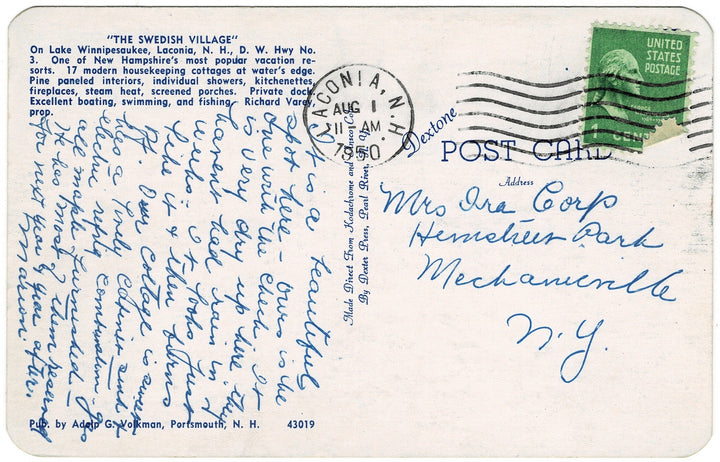 "THE SWEDISH VILLAGE"
On Lake Winnipesaukee, Laconia, N. H., D. W. Hwy No.
3. One of New Hampshire's most popular vacation re-
sorts. 17 modern housekeeping cottages at water's edge.
Pine paneled interiors, individual showers, kitchenettes,
fireplaces, steam heat, screened porches. Private dock.
Excellent boating, swimming, and fishing. Richard Varey,
prop.
It is a beautiful
spot here - ours is the
one with the check. It
is very dry up here. They
haven't had rain in 7
weeks. It looks just
like it & then turns
off. Our cottage is swell
has a lovely cabinet sink &
electric refrig combination. It's
all maple furnished.
He has most of them reserved
for next year & year after.
Marion.
Pub. by Adolp G. Volkman, Portsmouth, N. H. 43019
Made Direct From Kodachrome and Ansco Color
By Dexter Press, Pearl River, N. Y.
Dextone
LACONIA, N.H.
AUG 1
11 AM
1950
UNITED
STATES
POSTAGE
1 CENT
POST CARD
Address
Mrs Ira Corp
Hemstreet Park
Mechanicville
N.Y.